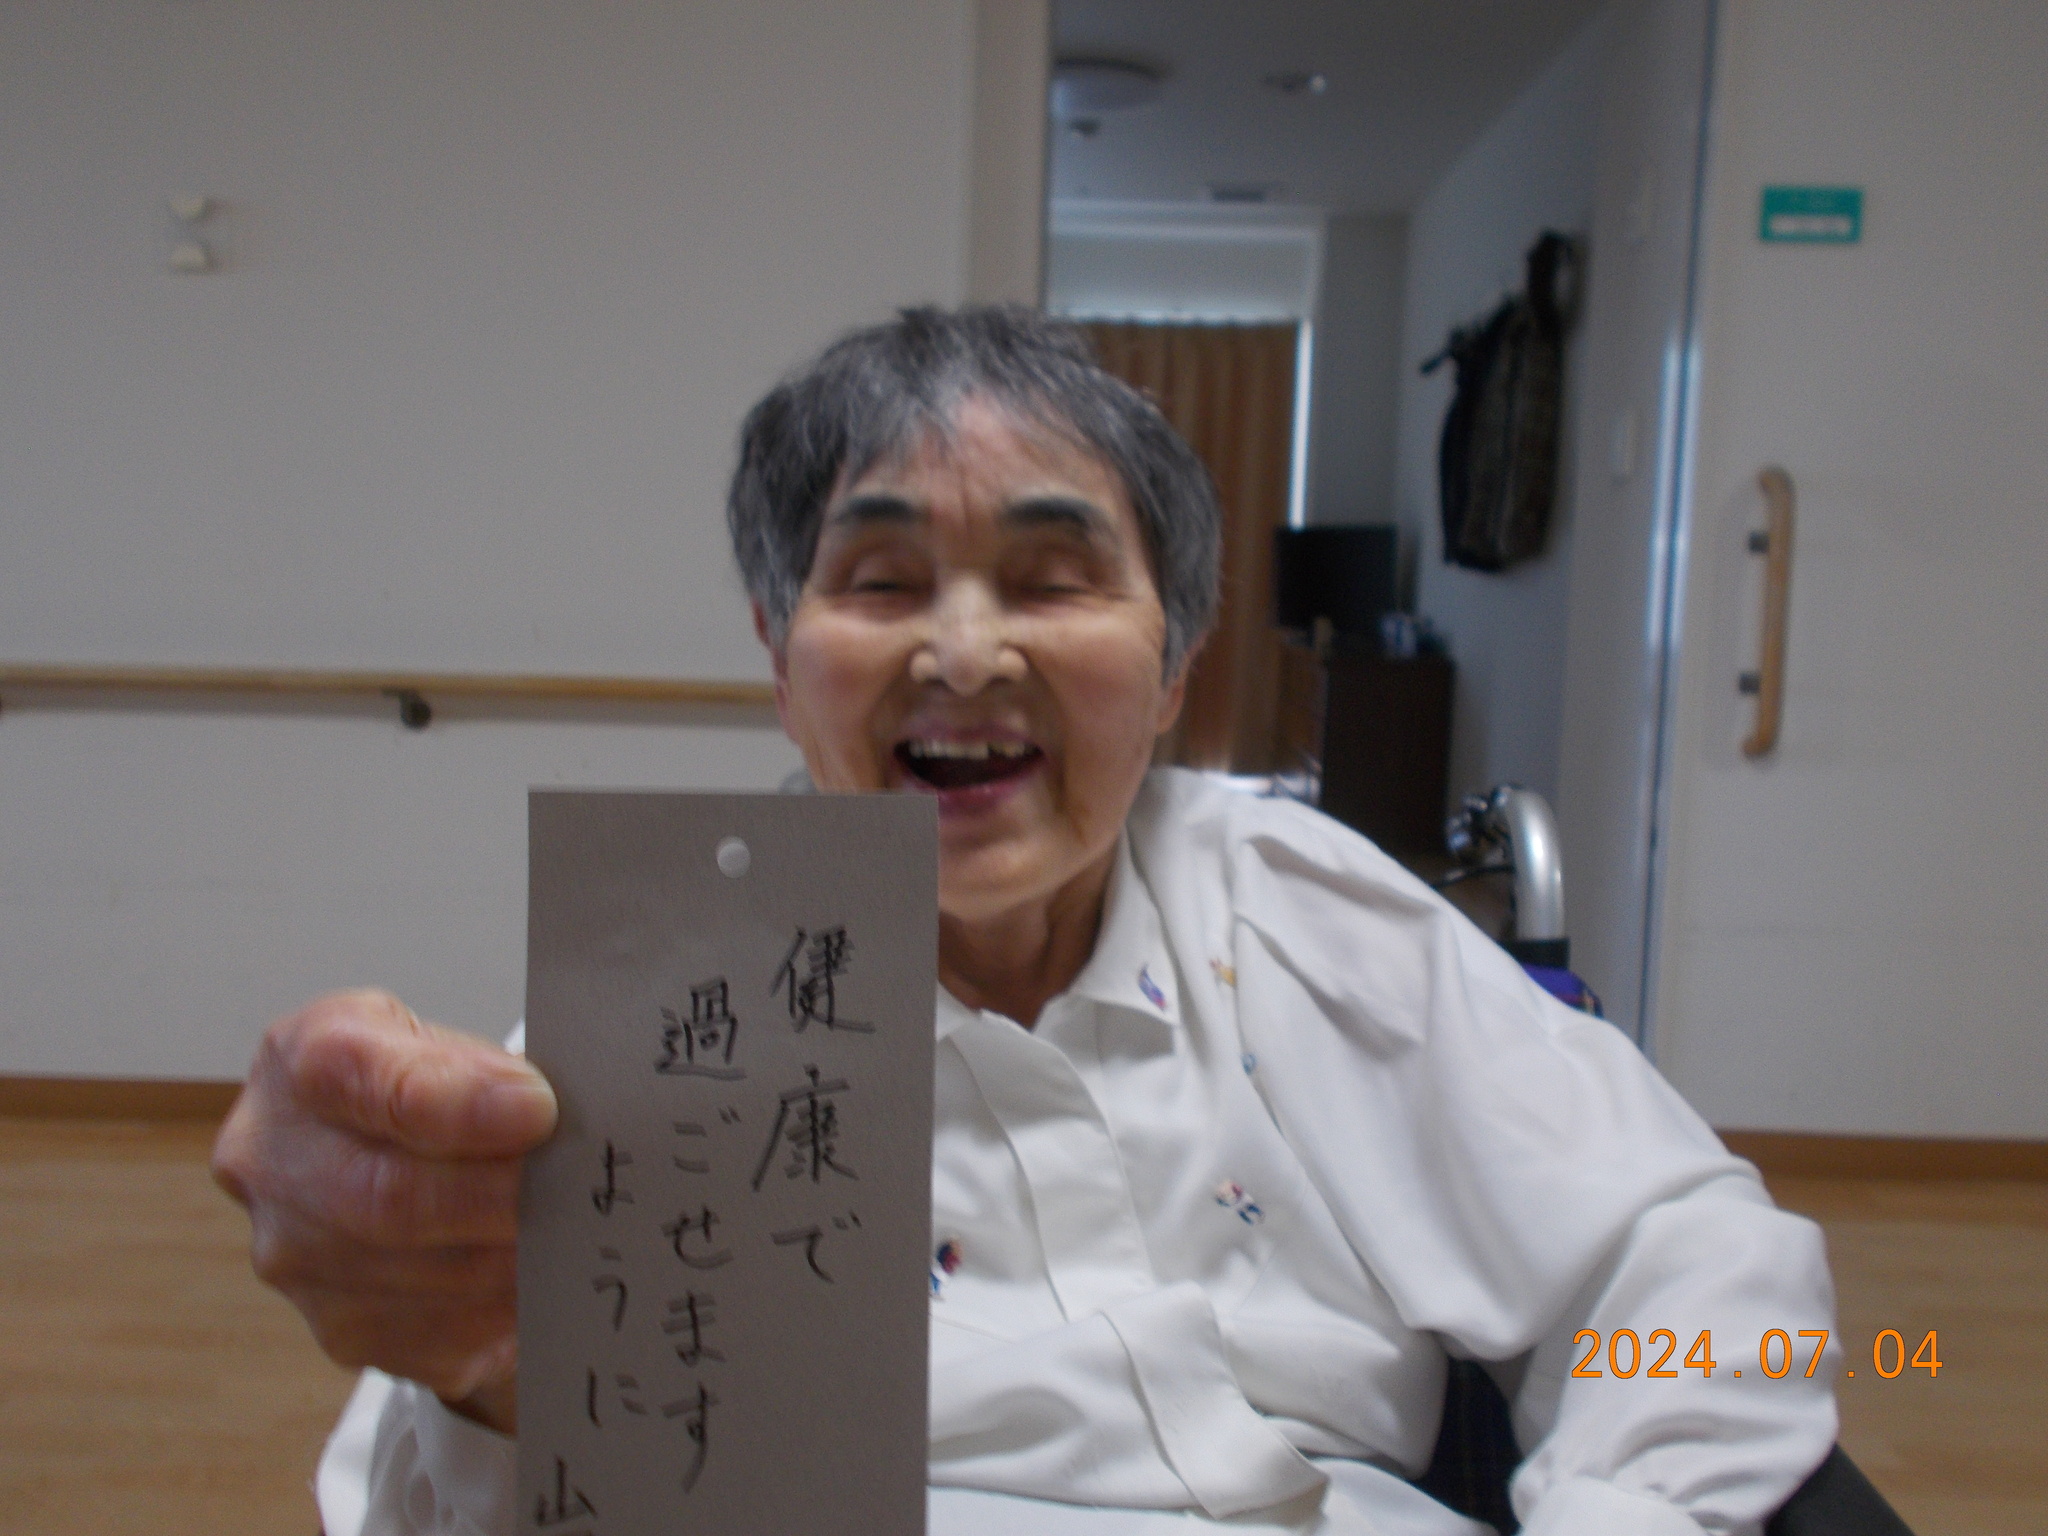 健康で
過ごせます
ように
山
2024.07.04